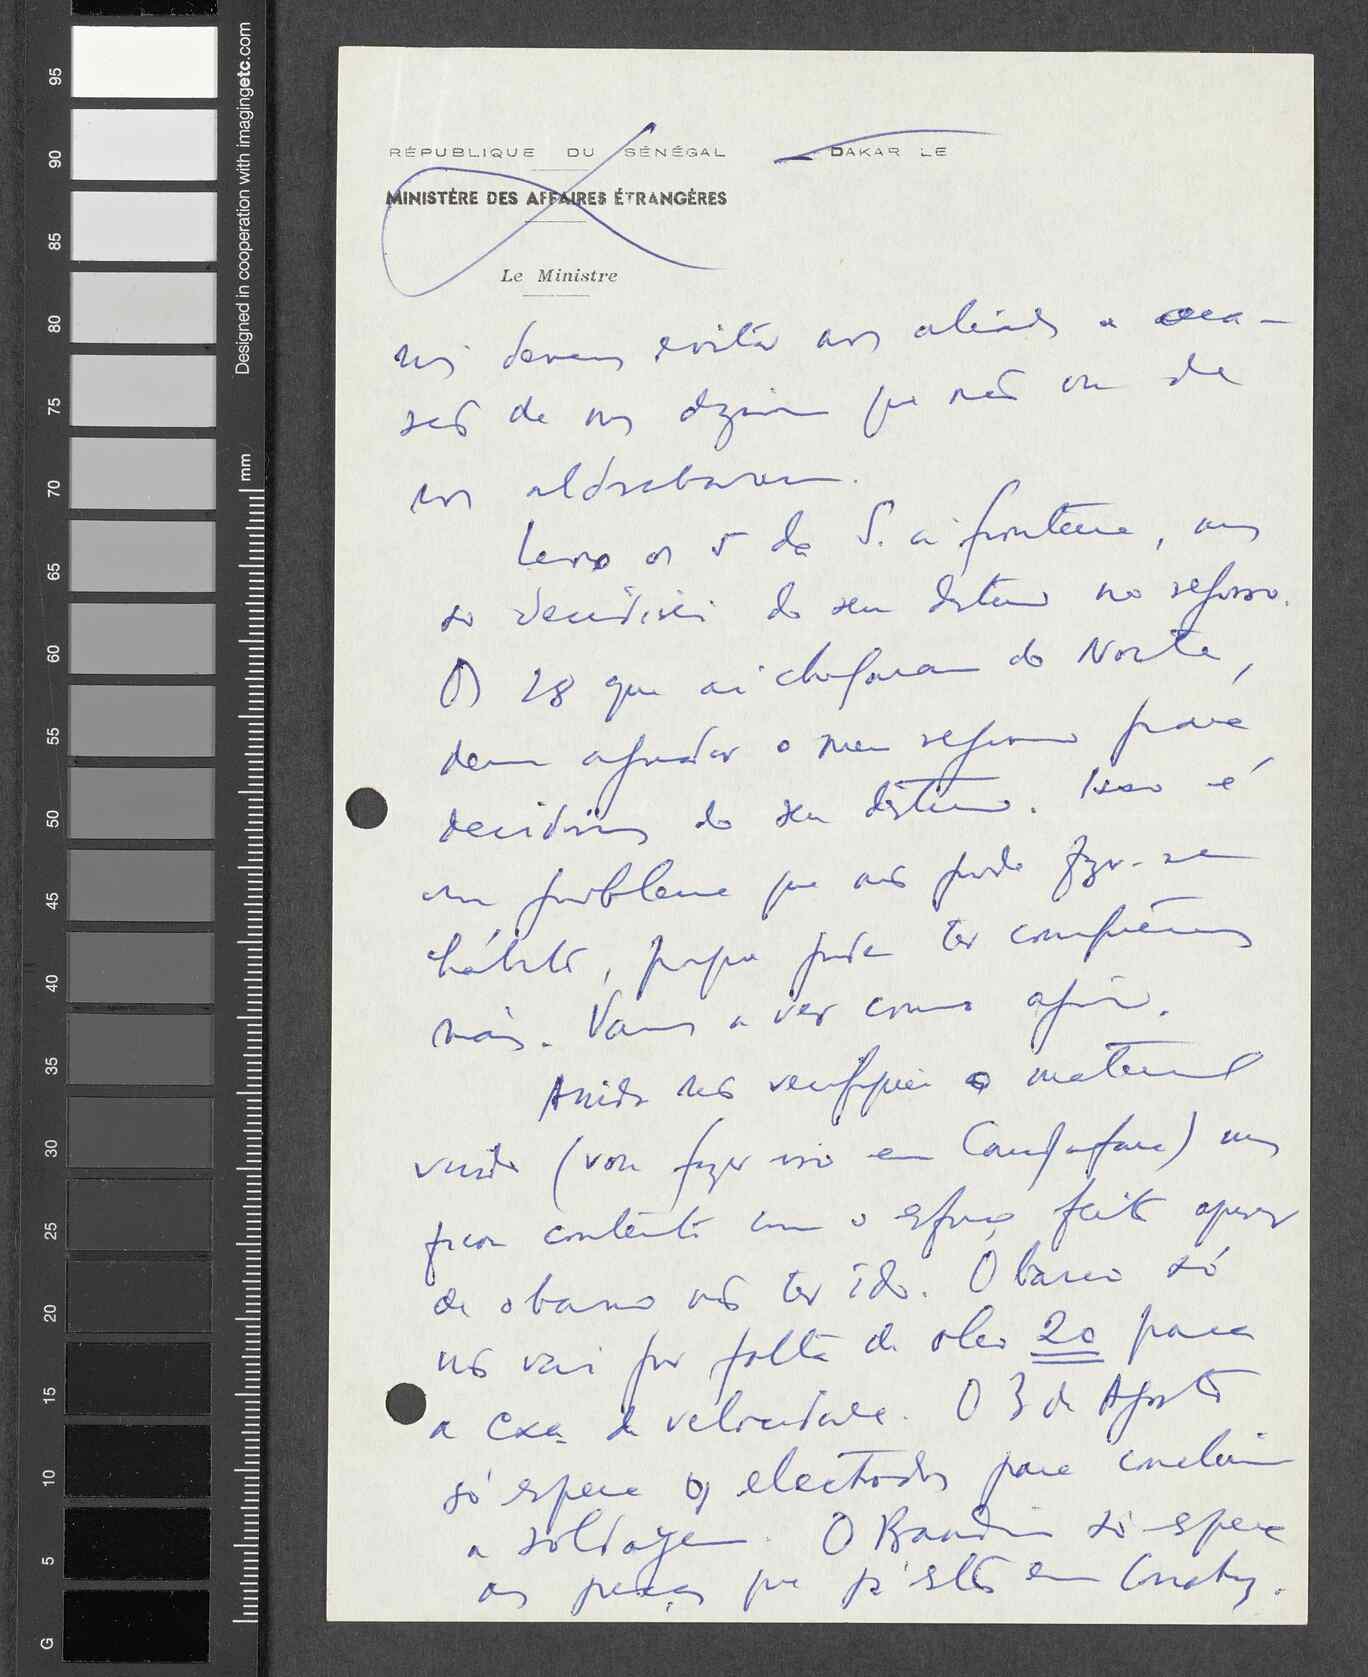 RÉPUBLIQUE DU SÉNÉGAL
DAKAR LE
MINISTÈRE DES AFFAIRES ÉTRANGÈRES
Le Ministre
nós devemos evitar aos aliados a oca-
são de nos dizerem que não ou de
nos aldrabarem.
Levo os 5 do S. à fronteira, mas
só decidirei do seu destino no regresso.
Os 28 que aí chegaram do Norte,
devem aguardar o meu regresso para
decidirmos do seu destino. Isso é
um problema que não pode fazer-se
hábito, porque pode ter consequências
más. Vamos a ver como agir.
Ainda não verifiquei o material
vindo (vou fazer isso em Candjafara) mas
fico contente com o esforço feito apesar
de o barco não ter ido. O barco só
não vai por falta de oleo 20 para
a cxa. de velocidade. O 3 de Agosto
só espera os electrodos para concluir
a soldagem. O Bandim só espera
as peças que já estão em Conakry.
95
90
85
80
75
70
65
60
55
50
45
40
35
30
25
20
15
10
5
G
mm
Designed in cooperation with imagingetc.com